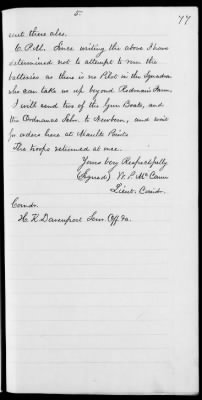 5
77
sent there also.
6 P.M. Since writing the above I have
determined not to attempt to run the
batteries as there is no Pilot in the Squadron
who can take us up beyond Rodman's Farm,
I will send two of the Gun Boats, and
the Ordnance Schr. to Newbern, and wait
for orders here at Maule's Point
The troops returned at once.
Yours very Respectfully
(Signed) W. P. McCann
Lieut. Comdr.
Comdr.
H. K. Davenport Sen. Off.